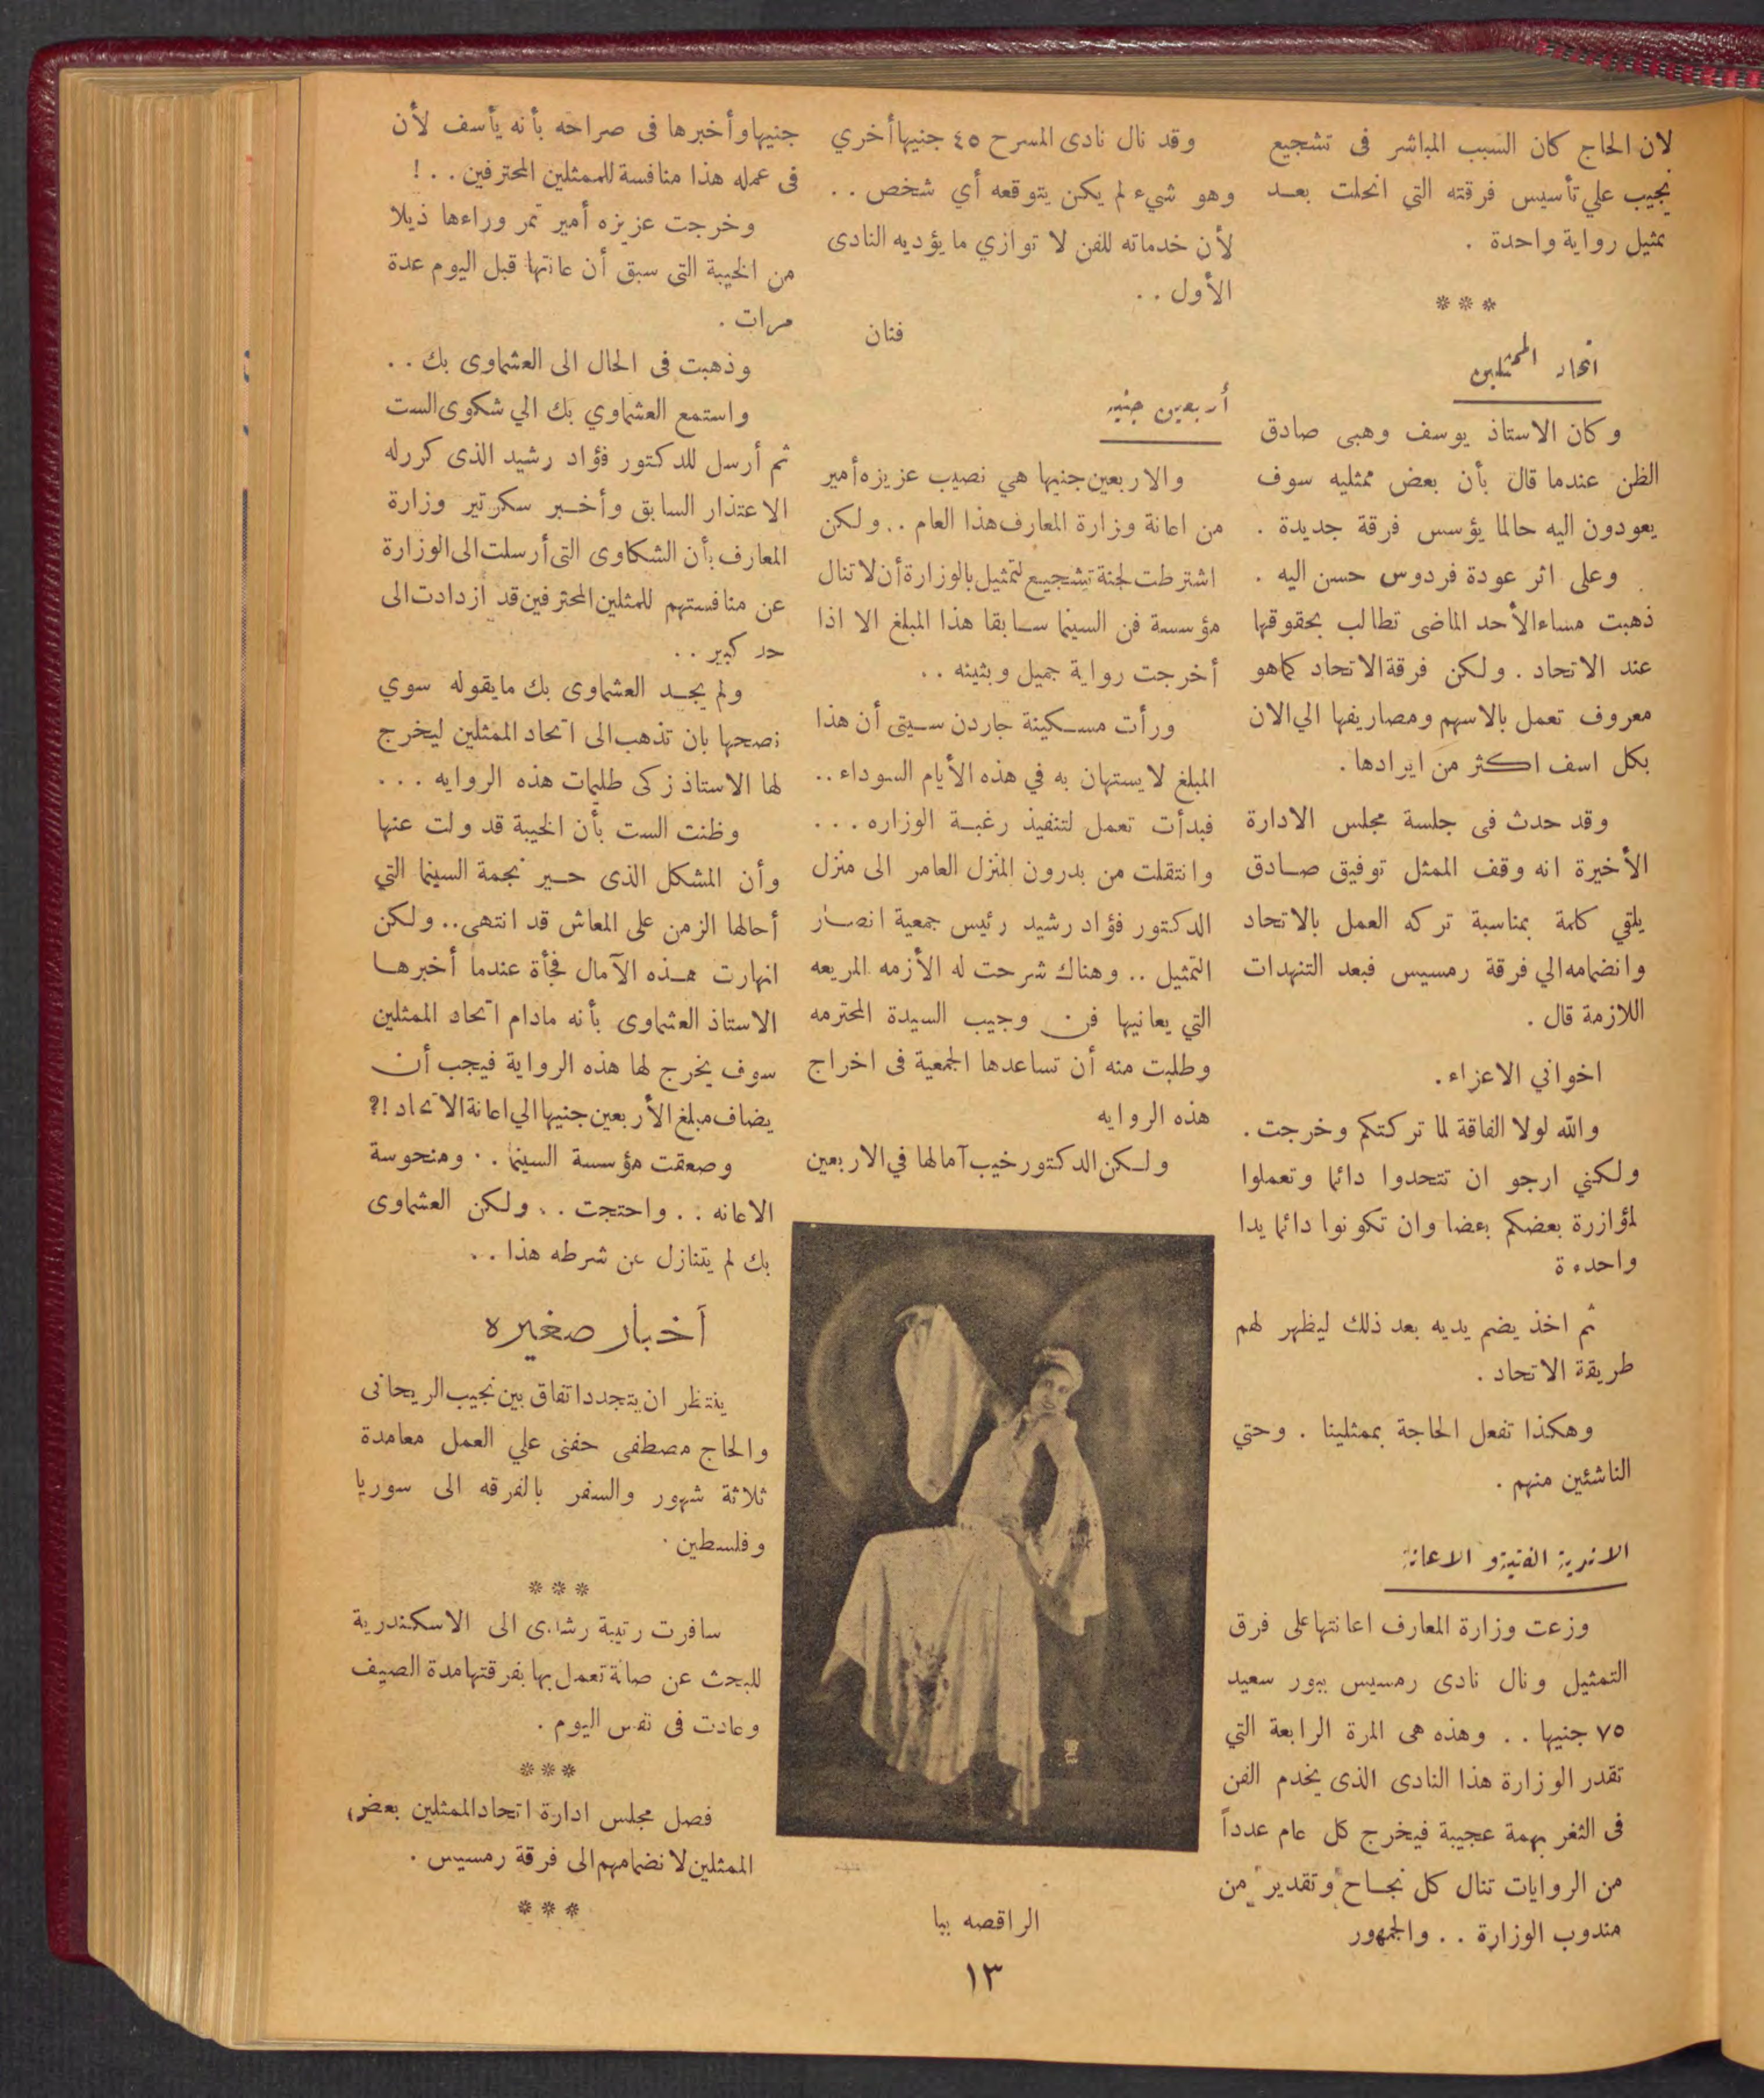 لان الحاج كان السبب المباشر فى تشجيع
نجيب علي تأسيس فرقته التي انحلت بعد
تمثيل رواية واحدة .
* * *
اتحاد الممثلين
وكان الاستاذ يوسف وهبى صادق
الظن عندما قال بأن بعض ممثليه سوف
يعودون اليه حالما يؤسس فرقة جديدة .
وعلى اثر عودة فردوس حسن اليه .
ذهبت مساء الأحد الماضى تطالب بحقوقها
عند الاتحاد . ولكن فرقة الاتحاد كما هو
معروف تعمل بالاسهم ومصاريفها الي الان
بكل اسف اكثر من ايرادها .
وقد حدث فى جلسة مجلس الادارة
الأخيرة انه وقف الممثل توفيق صادق
يلقي كلمة بمناسبة تركه العمل بالاتحاد
وانضمامه الي فرقة رمسيس فبعد التنهدات
اللازمة قال .
اخواني الاعزاء .
والله لولا الفاقة لما تركتكم وخرجت .
ولكنني ارجو ان تتحدوا دائما وتعملوا
لمؤازرة بعضكم بعضا وان تكونوا دائما يدا
واحدة
ثم اخذ يضم يديه بعد ذلك ليظهر لهم
طريقة الاتحاد .
وهكذا تفعل الحاجة بممثلينا . وحتي
الناشئين منهم .
الاندية الفنية و الاعانة
وزعت وزارة المعارف اعانتها على فرق
التمثيل ونال نادى رمسيس ببور سعيد
٧٥ جنيها . . وهذه هى المرة الرابعة التي
تقدر الوزارة هذا النادى الذى يخدم الفن
فى الثغر بهمة عجيبة فيخرج كل عام عدداً
من الروايات تنال كل نجاح وتقدير من
مندوب الوزارة . . والجمهور
وقد نال نادى المسرح ٤٥ جنيها أخري
وهو شيء لم يكن يتوقعه أي شخص . .
لأن خدماته للفن لا توازي ما يؤديه النادى
الأول . .
فنان
أربعين جنيه
والاربعين جنيها هي نصيب عزيزه أمير
من اعانة وزارة المعارف هذا العام . . ولكن
اشترطت لجنة تشجيع التمثيل بالوزارة أن لا تنال
مؤسسة فن السينما سابقا هذا المبلغ الا اذا
أخرجت رواية جميل وبثينه . .
ورأت مسكينة جاردن سيتى أن هذا
المبلغ لا يستهان به في هذه الأيام السوداء . .
فبدأت تعمل لتنفيذ رغبة الوزاره . . .
وانتقلت من بدرون المنزل العامر الى منزل
الدكتور فؤاد رشيد رئيس جمعية انصار
التمثيل . . وهناك شرحت له الأزمه المريعه
التي يعانيها فن وجيب السيدة المحترمه
وطلبت منه أن تساعدها الجمعية فى اخراج
هذه الروايه
ولكن الدكتور خيب آمالها في الاربعين
الراقصه ببا
جنيها وأخبرها فى صراحه بأنه يأسف لأن
فى عمله هذا منافسة للممثلين المحترفين . . !
وخرجت عزيزه أمير تجر وراءها ذيلا
من الخيبة التى سبق أن عانتها قبل اليوم عدة
مرات .
وذهبت فى الحال الى العشماوى بك . .
واستمع العشماوي بك الي شكوى الست
ثم أرسل للدكتور فؤاد رشيد الذى كرر له
الاعتذار السابق وأخبر سكرتير وزارة
المعارف بأن الشكاوى التى أرسلت الى الوزارة
عن منافستهم للمثلين المحترفين قد ازدادت الى
حد كبير . .
ولم يجد العشماوى بك ما يقوله سوي
نصحها بان تذهب الى اتحاد الممثلين ليخرج
لها الاستاذ زكى طليمات هذه الروايه . . .
وظنت الست بأن الخيبة قد ولت عنها
وأن المشكل الذى حير نجمة السينما التي
أحالها الزمن على المعاش قد انتهى . . ولكن
انهارت هذه الآمال فجأة عندما أخبرها
الاستاذ العشماوى بأنه مادام اتحاد الممثلين
سوف يخرج لها هذه الرواية فيجب أن
يضاف مبلغ الأربعين جنيها الي اعانة الاتحاد !؟
وصعقت مؤسسة السينما . . ومنحوسة
الاعانه . . واحتجت . . ولكن العشماوى
بك لم يتنازل عن شرطه هذا . .
أخبار صغيره
ينتظر ان يتجدد اتفاق بين نجيب الريحانى
والحاج مصطفى حفنى علي العمل معا مدة
ثلاثة شهور والسفر بالفرقه الى سوريا
وفلسطين .
* * *
سافرت رتيبة رشدى الى الاسكندرية
للبحث عن صالة تعمل بها بفرقتها مدة الصيف
وعادت فى نفس اليوم .
* * *
فصل مجلس ادارة اتحاد الممثلين بعض
الممثلين لانضمامهم الى فرقة رمسيس .
* * *
١٣